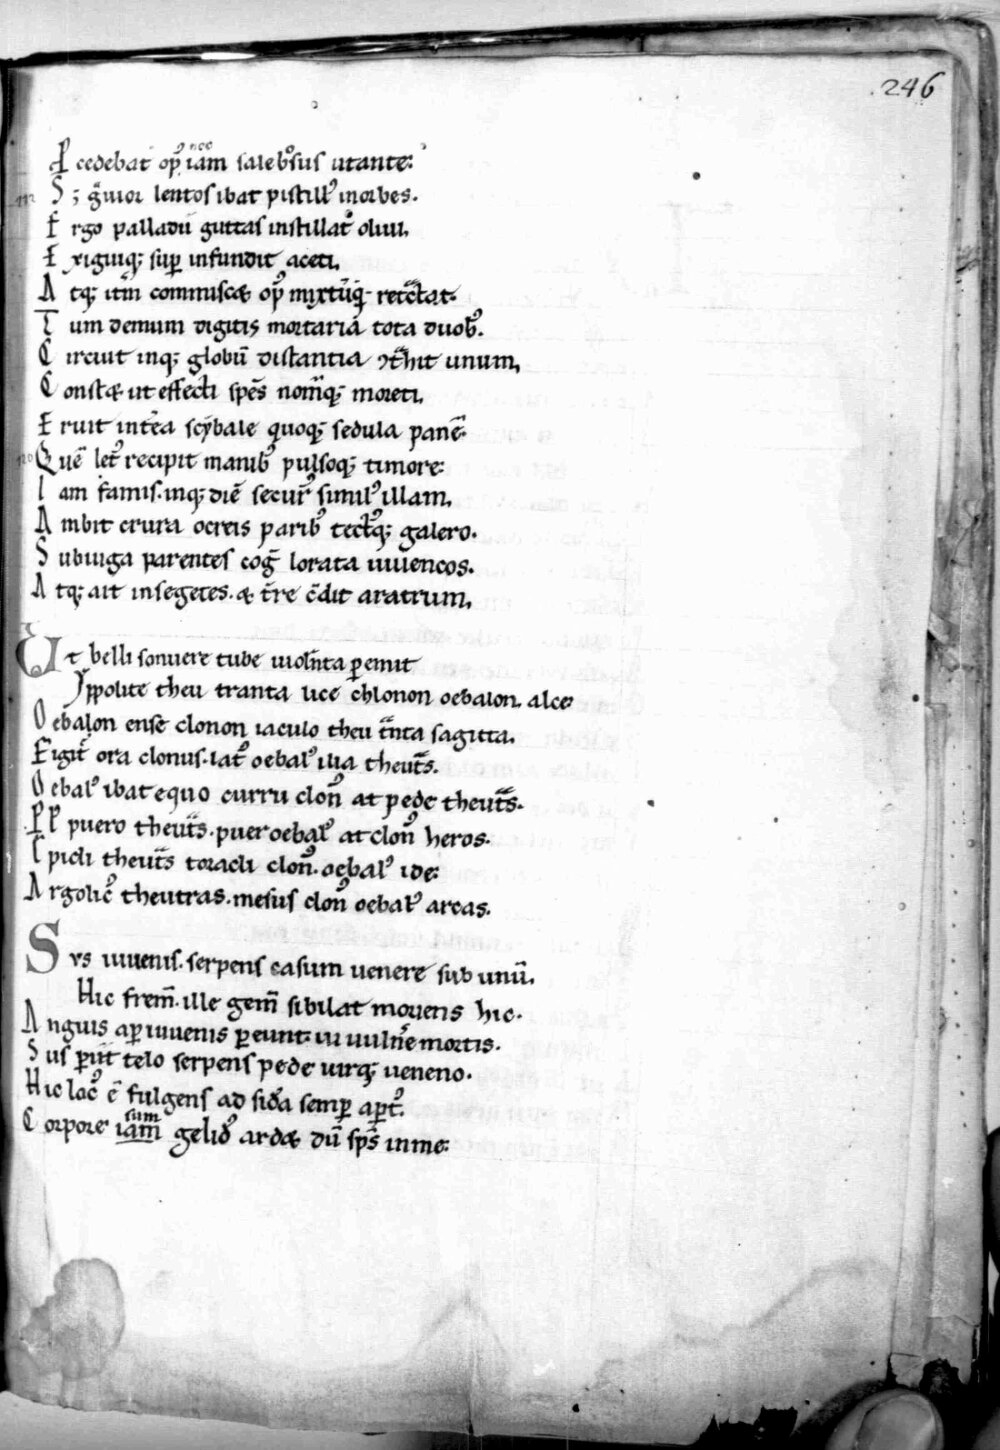 246
P̲cedebat op᷒ iam salebᵒsus ut ante:
nec
112 S; gͣuior lentos ibat pistill᷒ in orbes.
E rgo palladii guttas instillat olivi.
E xiguiq; sup̲ infundit aceti.
A tq; itm̄ commiscæ op᷒ mixtūq; retͣctat.
T um demum digitis mortaria tota duob᷒.
C ircuit inq; globū distantia ↄtͣhit unum,
C onstæ ut effecti spēs nom̄q; moreti.
E ruit int̄ea scybale quoq; sedula panē.
120 Quē let᷒ recipit manib᷒ pulsoq; timore:
I am famis. inq; diē secur᷒ simil᷒ illam,
A mbit crura ocreis parib᷒ tect᷒q; galero.
S ub iuga parentes cog̅ lorata iuuencos.
A tq; ait in segetes. & t̄re c̄dit aratrum.
Ut belli sonuere tube uiolēnta p̲emit
Yppolite theu tranta lice chlonon oebalon. alce
O ebalon ense clonon iaculo theu tͣnta sagitta.
F igit᷒ ora clonus. lat᷒ oebal᷒ ilia theutͣs.
O ebal᷒ ibat equo curru clon᷒ at pede theutͣs.
P l᷒ puero theutͣs. puer oebal᷒ at clon᷒ heros.
E picli theutͣs toracli clon᷒. oebal᷒ ide:
A rgolic᷒ theutras. mesus clon᷒ oebal᷒ arcas.
Sus iuuenis. serpens casum uenere sub unū.
Hic frem̄. ille gem̄ sibilat moriens hic.
A nguis ap̲ iuuenis p̲eunt. ui uuln̄e mortis.
S us p̲iit telo serpens pede uirq; ueneno.
H ic loc᷒ ē fulgens ad sid̄a semp̲ ap̲t᷒.
sum
C orpore iam gelid᷒ ardæ dū sp̄s in me: